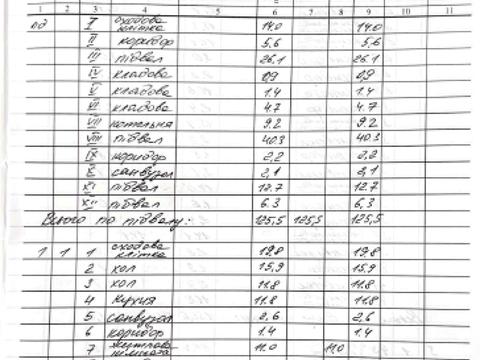 1 2 3 4 5 6 7 8 9 10 11
пд I сходова клітка 14.0 14.0
II коридор 5,6 5,6
III підвал 26.1 26.1
IV кладова 0,9 0,9
V кладова 1.4 1.4
VI кладова 4.7 4.7
VII котельня 9.2 9.2
VIII підвал 40.3 40.3
IX коридор 2,2 2,2
X санвузол 2,1 2,1
XI підвал 12.7 12.7
XII підвал 6.3 6,3
Всього по підвалу: 125,5 125,5 125,5
1 1 1 сходова клітка 19.8 19.8
2 хол 15,9 15,9
3 хол 11.8 11.8
4 кухня 11.8 11.8
5 санвузол 2,6 2,6
6 коридор 1.4 1.4
7 житлова кімната 11.0 11.0